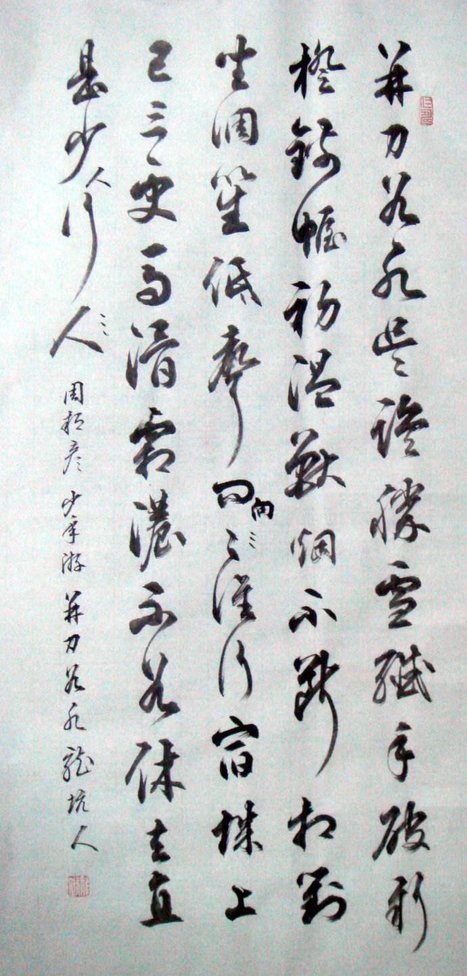 并刀如水吳鹽勝雪纖手破新
橙錦幄初温獸烟不斷相對
坐調笙低聲問向誰行宿城上
已三更馬滑霜濃不如休去直
是少人行
周邦彦 少年游 并刀如水 龍坑人